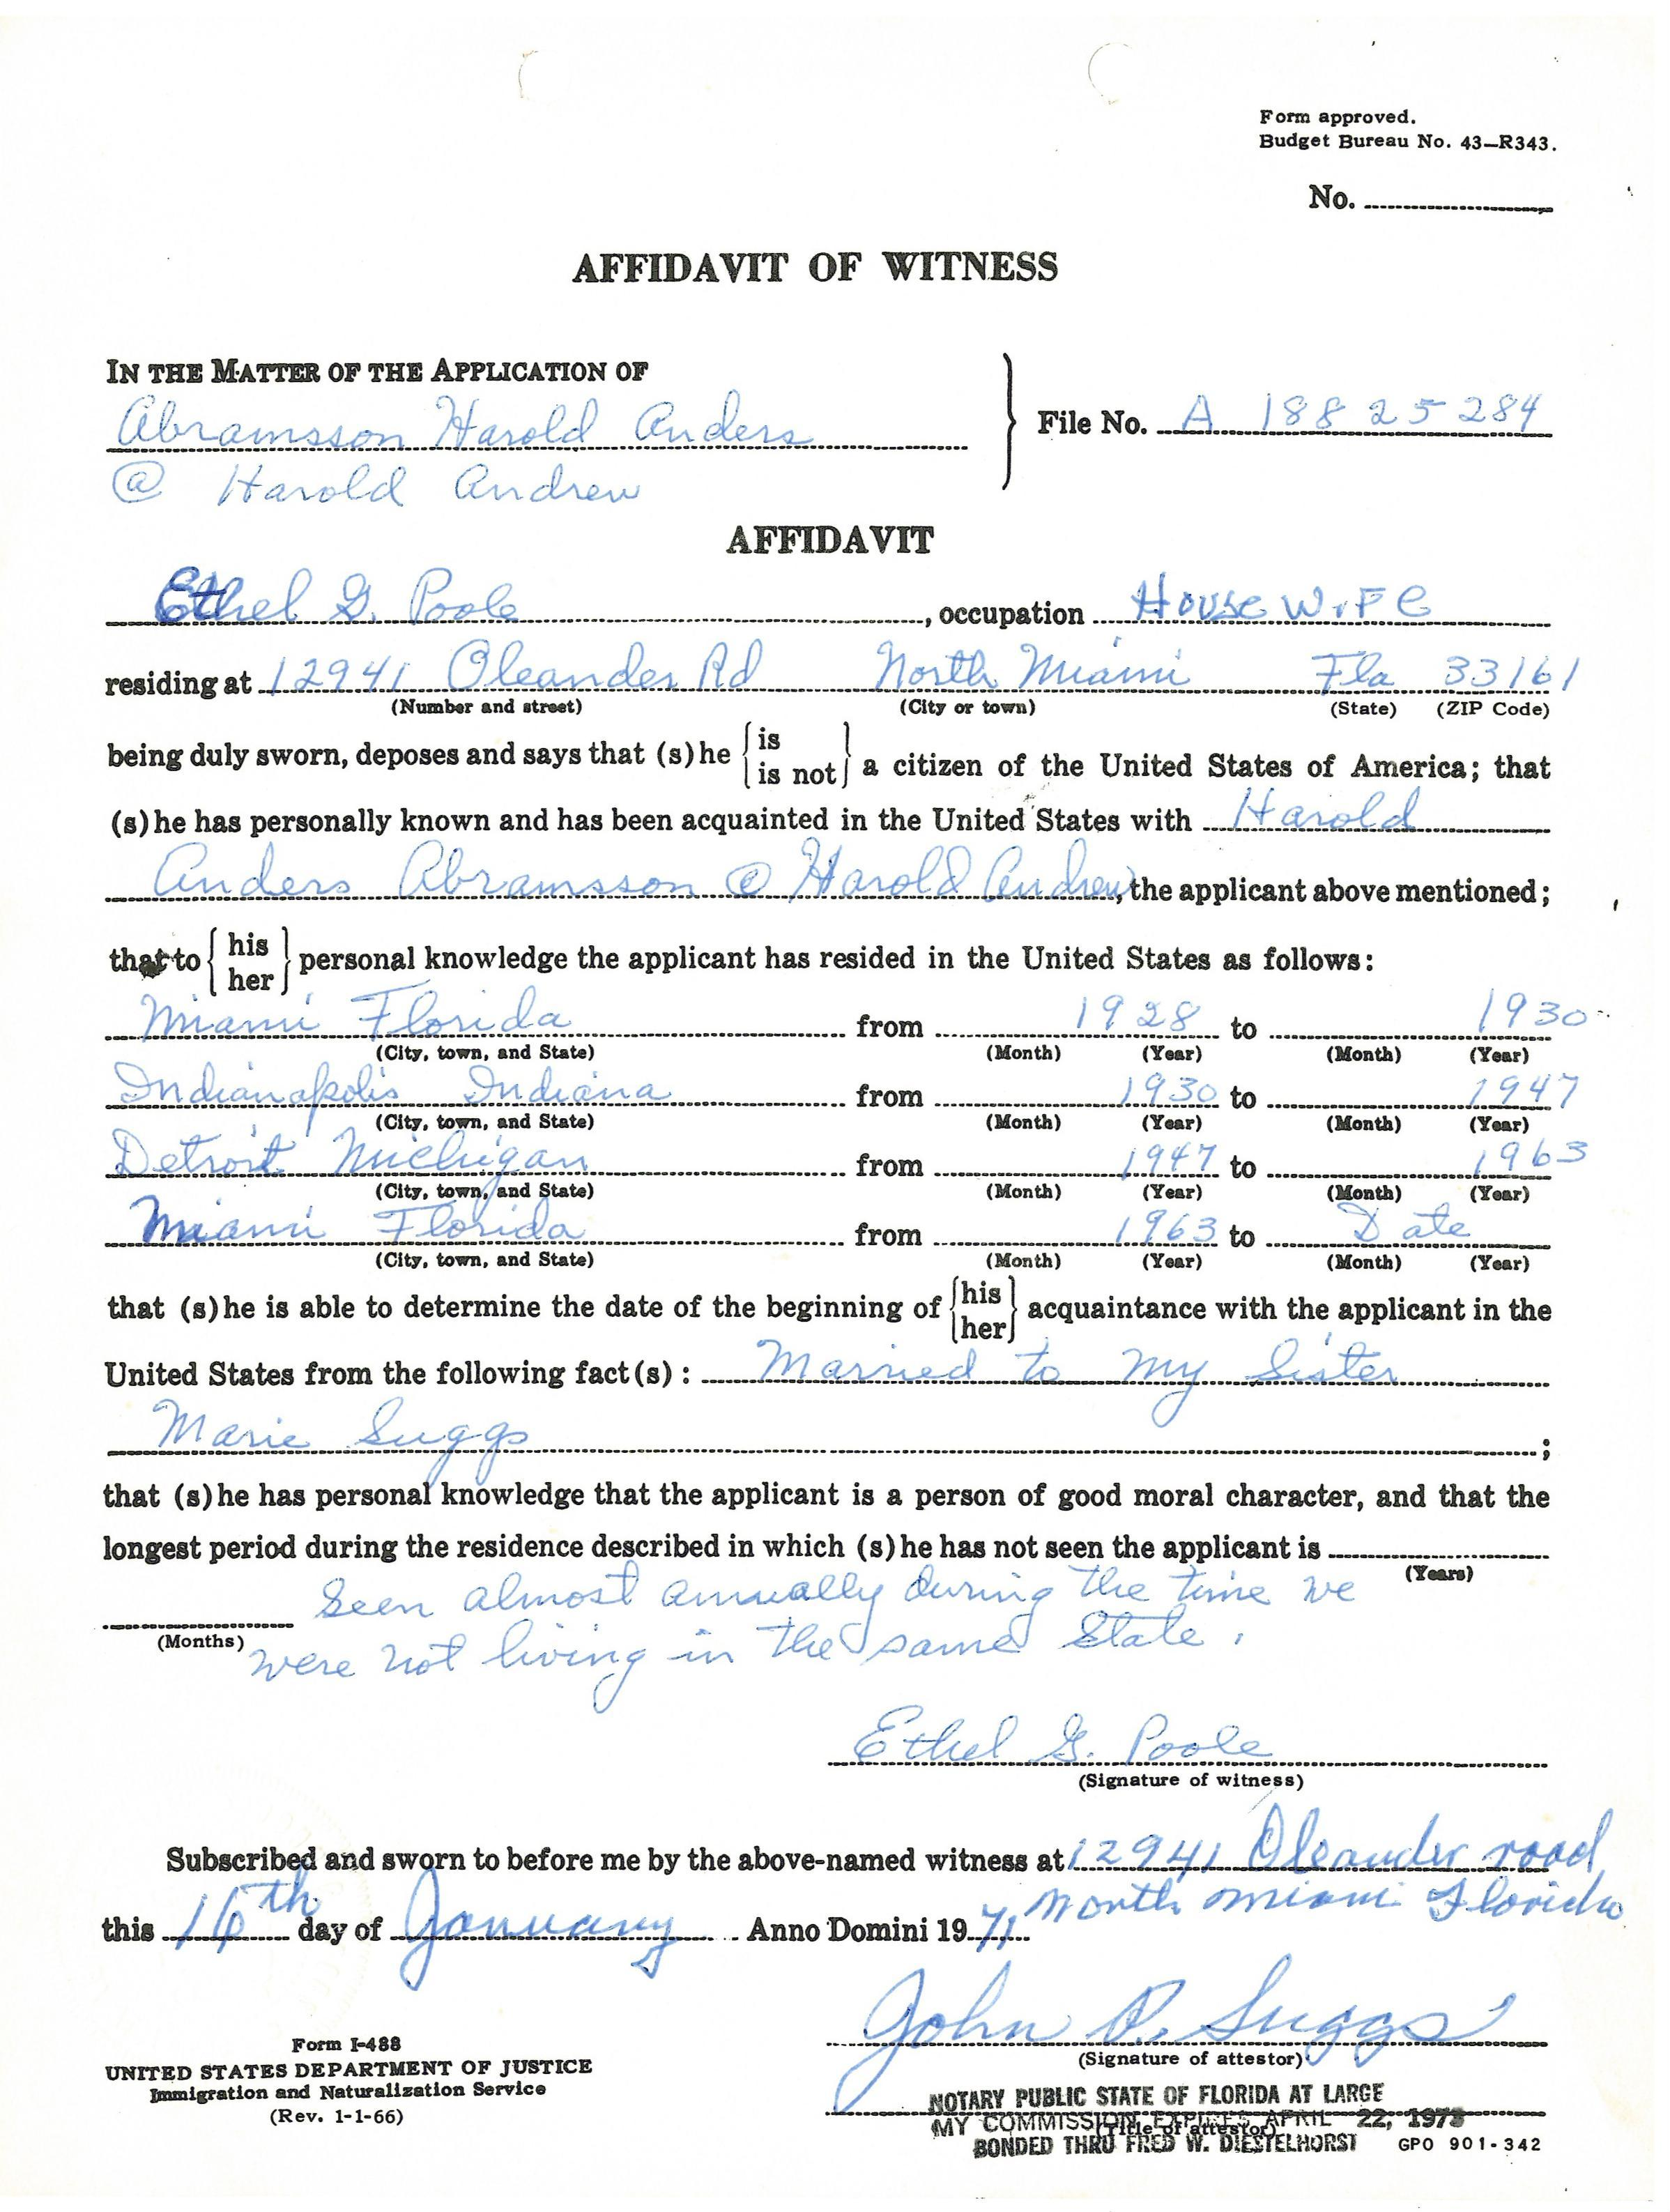 Form approved.
Budget Bureau No. 43—R343.
No.
AFFIDAVIT OF WITNESS
IN THE MATTER OF THE APPLICATION OF
Abramsson Harold Anders
File No. A 18825284
@ Harold Andrew
AFFIDAVIT
Ethel G. Poole, occupation HouseWiFe
residing at 12941 Oleander Rd North Miami Fla 33161
(Number and street) (City or town) (State) (ZIP Code)
being duly sworn, deposes and says that (s)he {is / is not} a citizen of the United States of America; that
(s)he has personally known and has been acquainted in the United States with Harold
Anders Abramsson @ Harold Andrew, the applicant above mentioned;
that to {his / her} personal knowledge the applicant has resided in the United States as follows:
Miami Florida from 1928 to 1930
(City, town, and State) (Month) (Year) (Month) (Year)
Indianapolis Indiana from 1930 to 1947
(City, town, and State) (Month) (Year) (Month) (Year)
Detroit Michigan from 1947 to 1963
(City, town, and State) (Month) (Year) (Month) (Year)
Miami Florida from 1963 to Date
(City, town, and State) (Month) (Year) (Month) (Year)
that (s)he is able to determine the date of the beginning of {his / her} acquaintance with the applicant in the
United States from the following fact(s): Married to My Sister
Marie Suggs;
that (s)he has personal knowledge that the applicant is a person of good moral character, and that the
longest period during the residence described in which (s)he has not seen the applicant is
(Years)
Seen almost annually during the time we
(Months)
were not living in the same State.
Ethel G. Poole
(Signature of witness)
Subscribed and sworn to before me by the above-named witness at 12941 Oleander road
North Miami Florida
this 16th day of January Anno Domini 1971
John D. Suggs
(Signature of attestor)
Form I-488
UNITED STATES DEPARTMENT OF JUSTICE
Immigration and Naturalization Service
(Rev. 1-1-66)
NOTARY PUBLIC STATE OF FLORIDA AT LARGE
MY COMMISSION EXPIRES APRIL 22, 1973
(Title of attestor)
BONDED THRU FRED W. DIESTELHORST
GPO 901-342